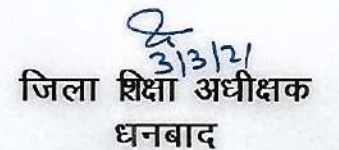 3/3/21
जिला शिक्षा अधीक्षक
धनबाद